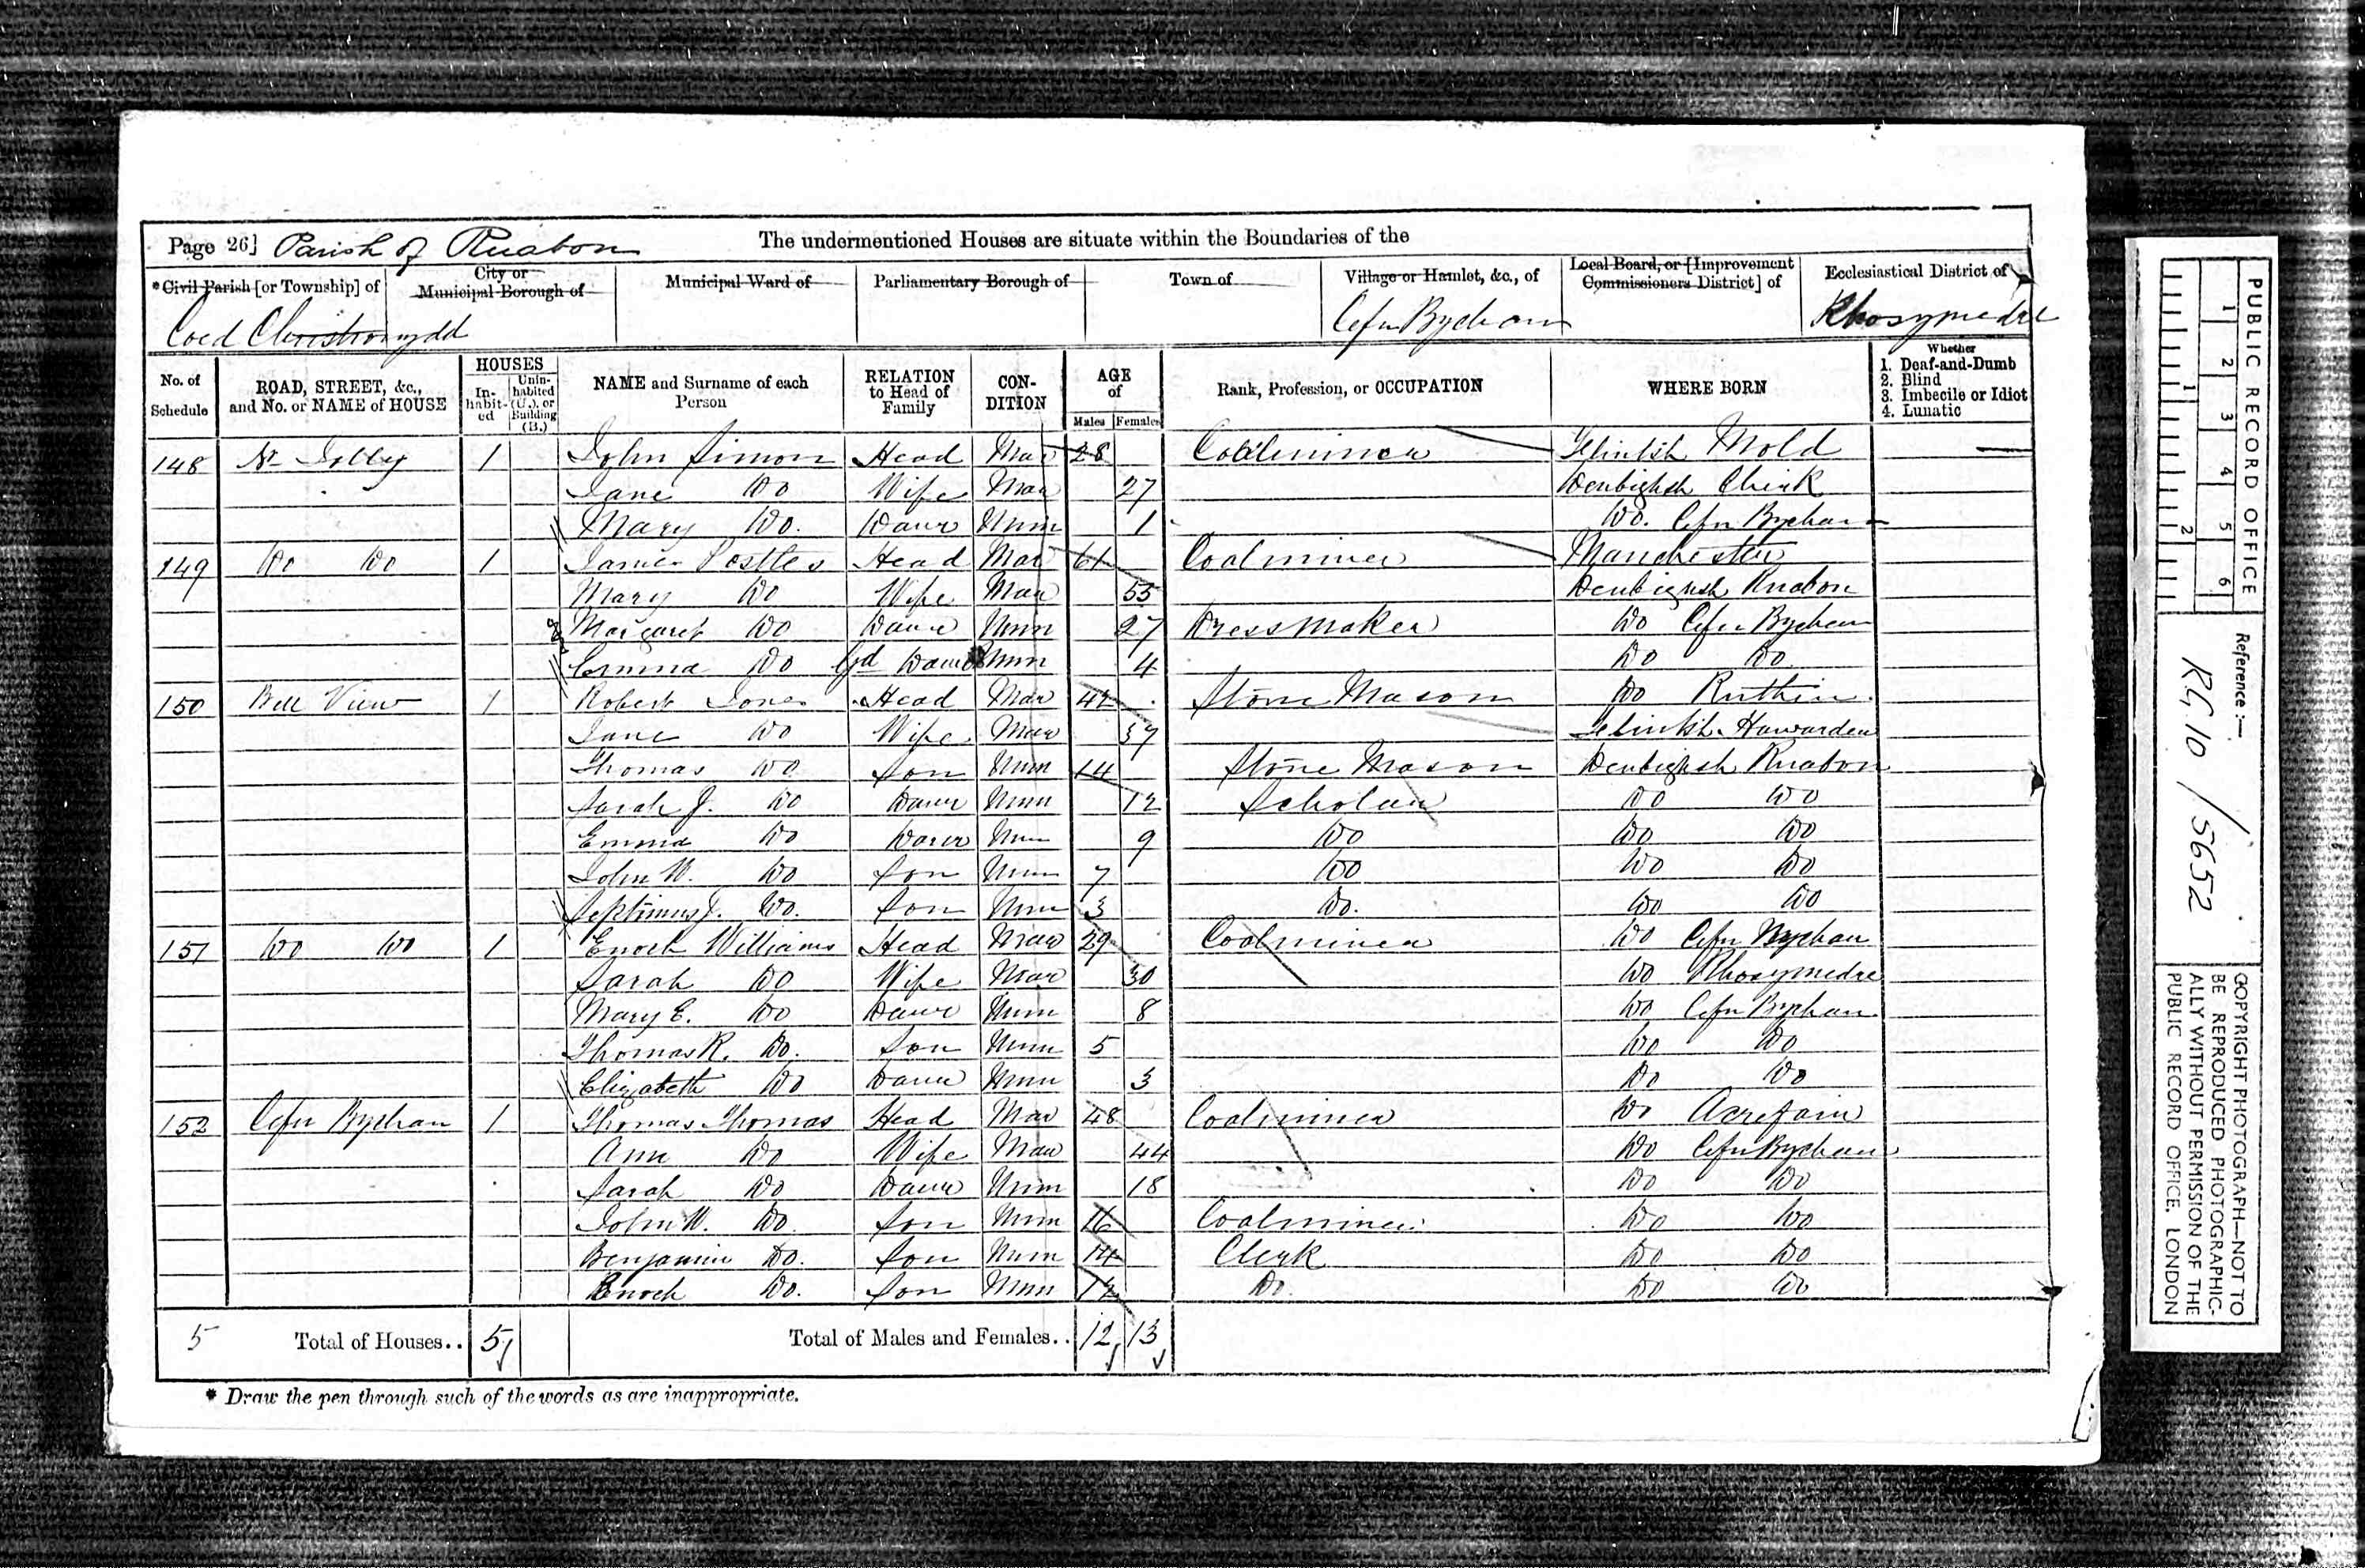 Page 26] Parish of Ruabon The undermentioned Houses are situate within the Boundaries of the
*Civil Parish [or Township] of City or Municipal Borough of Municipal Ward of Parliamentary Borough of Town of Village or Hamlet, &c., of Local Board, or [Improvement Commissioners District] of Ecclesiastical District of
Coed Christionydd Cefn Bychan Rhosymedre
No. of Schedule ROAD, STREET, &c., and No. or NAME of HOUSE HOUSES In-habit-ed Unin-habited (U.), or Building (B.) NAME and Surname of each Person RELATION to Head of Family CON-DITION AGE of Males Females Rank, Profession, or OCCUPATION WHERE BORN Whether 1. Deaf-and-Dumb 2. Blind 3. Imbecile or Idiot 4. Lunatic
148 Nr Folly 1 John Simon Head Mar 28 Coalminer Flintsh Mold
Jane Do Wife Mar 27 Denbighsh Chirk
Mary Do. Daur Unm 1 Do. Cefn Bychan
149 Do Do 1 James Postles Head Mar 61 Coalminer Manchester
Mary Do Wife Mar 55 Denbighsh Ruabon
Margaret Do Daur Unm 27 Dressmaker Do Cefn Bychan
Emma Do Gd Daur Unm 4 Do Do
150 Bell View 1 Robert Jones Head Mar 42 Stone Mason Do Ruthin
Jane Do Wife Mar 37 Flintsh Hawarden
Thomas Do Son Unm 14 Stone Mason Denbighsh Ruabon
Sarah J. Do Daur Unm 12 Scholar Do Do
Emma Do Daur Unm 9 Do Do Do
John W. Do Son Unm 7 Do Do Do
Septimus J. Do. Son Unm 3 Do. Do Do
151 Do Do 1 Enoch Williams Head Mar 29 Coalminer Do Cefn Bychan
Sarah Do Wife Mar 30 Do Rhosymedre
Mary E. Do Daur Unm 8 Do Cefn Bychan
Thomas R. Do. Son Unm 5 Do Do
Elizabeth Do Daur Unm 3 Do Do
152 Cefn Bychan 1 Thomas Thomas Head Mar 48 Coalminer Do Acrefair
Ann Do Wife Mar 44 Do Cefn Bychan
Sarah Do Daur Unm 18 Do Do
John W. Do. Son Unm 16 Coalminer Do Do
Benjamin Do. Son Unm 14 Clerk Do Do
Enoch Do. Son Unm 12 Do. Do Do
5 Total of Houses.. 5 Total of Males and Females.. 12 13
* Draw the pen through such of the words as are inappropriate.
PUBLIC RECORD OFFICE
1 2 3 4 5 6
1 2
Reference :—
RG 10 / 5652
COPYRIGHT PHOTOGRAPH—NOT TO
BE REPRODUCED PHOTOGRAPHIC-
ALLY WITHOUT PERMISSION OF THE
PUBLIC RECORD OFFICE, LONDON